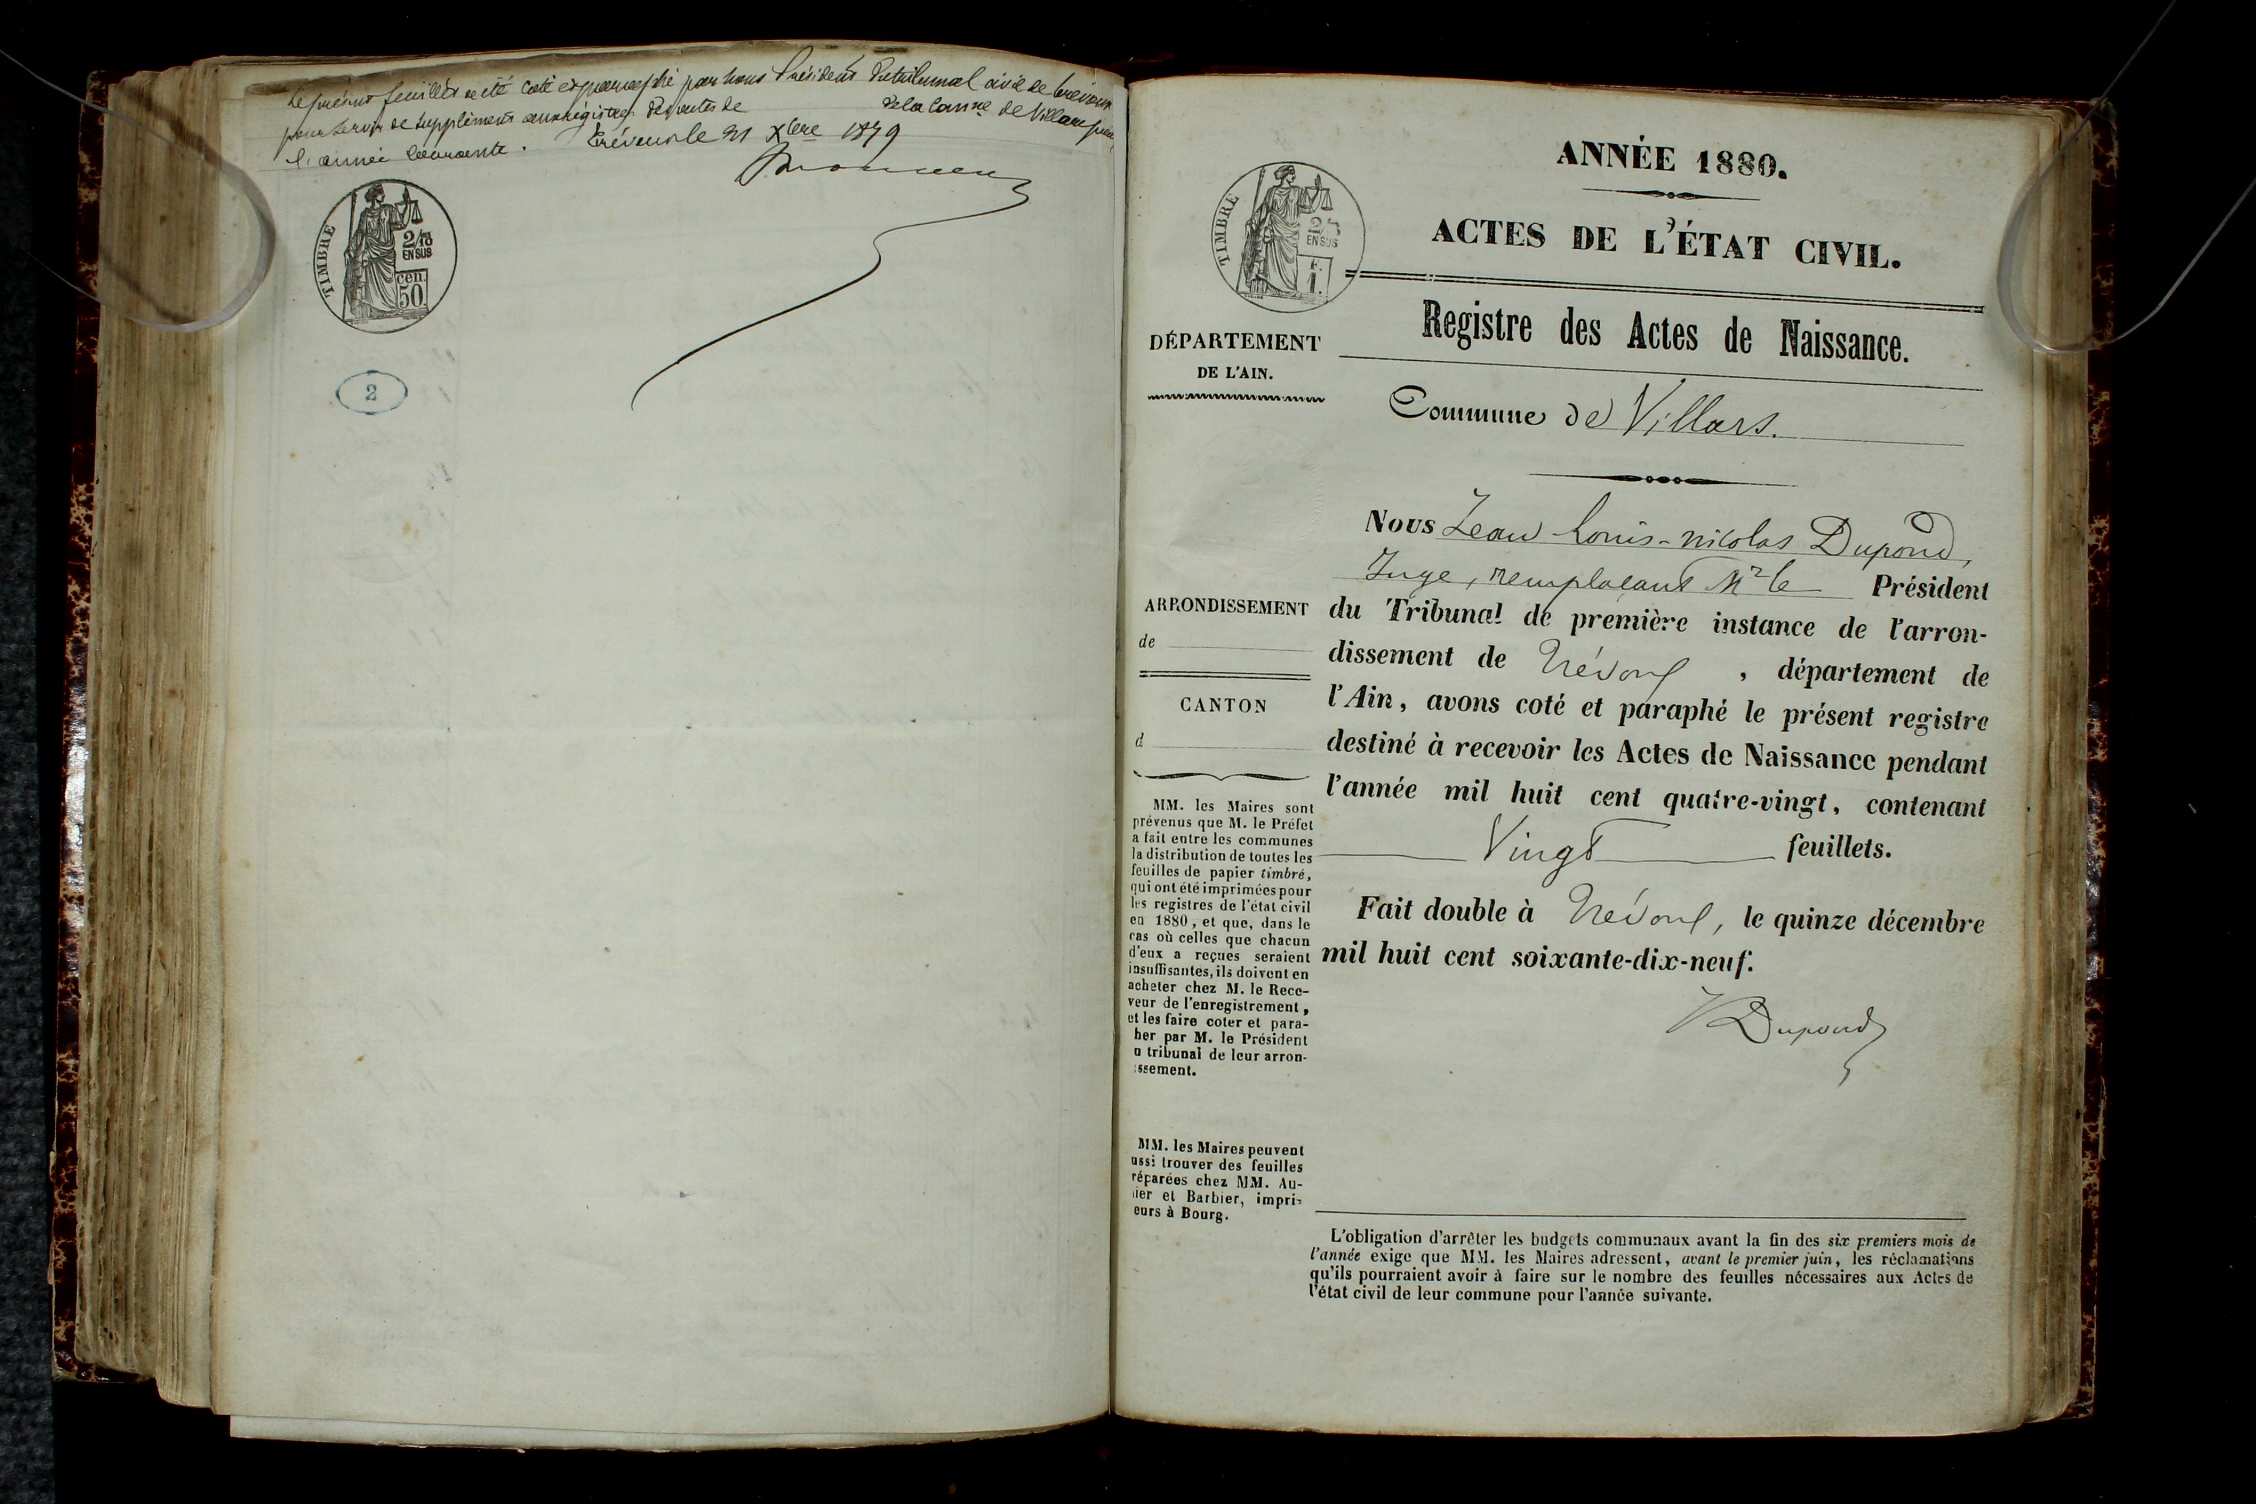 Le présent feuillet a été coté et paraphé par nous Président du tribunal civil de Trévoux
pour servir de supplément aux registres des actes de de la Comne de Villars pour
l'année courante. Trévoux le 31 Xbre 1879
TIMBRE
2/10
EN SUS
cen.
50
2
ANNÉE 1880.
ACTES DE L'ÉTAT CIVIL.
TIMBRE
EN SUS
F.
1.
DÉPARTEMENT
DE L'AIN.
Registre des Actes de Naissance.
Commune de Villars.
Nous Jean Louis-nicolas Dupond,
Juge, remplaçant Mr le Président
du Tribunal de première instance de l'arron-
dissement de Trévoux, département de
l'Ain, avons coté et paraphé le présent registre
destiné à recevoir les Actes de Naissance pendant
l'année mil huit cent quatre-vingt, contenant
Vingt feuillets.
Fait double à Trévoux, le quinze décembre
mil huit cent soixante-dix-neuf.
Dupond
ARRONDISSEMENT
de
CANTON
d
MM. les Maires sont
prévenus que M. le Préfet
a fait entre les communes
la distribution de toutes les
feuilles de papier timbré,
qui ont été imprimées pour
les registres de l'état civil
en 1880, et que, dans le
cas où celles que chacun
d'eux a reçues seraient
insuffisantes, ils doivent en
acheter chez M. le Rece-
veur de l'enregistrement,
et les faire coter et para-
her par M. le Président
u tribunal de leur arron-
ssement.
MM. les Maires peuvent
ussi trouver des feuilles
réparées chez MM. Au-
ier et Barbier, impri-
eurs à Bourg.
L'obligation d'arrêter les budgets communaux avant la fin des six premiers mois de
l'année exige que MM. les Maires adressent, avant le premier juin, les réclamations
qu'ils pourraient avoir à faire sur le nombre des feuilles nécessaires aux Actes de
l'état civil de leur commune pour l'année suivante.